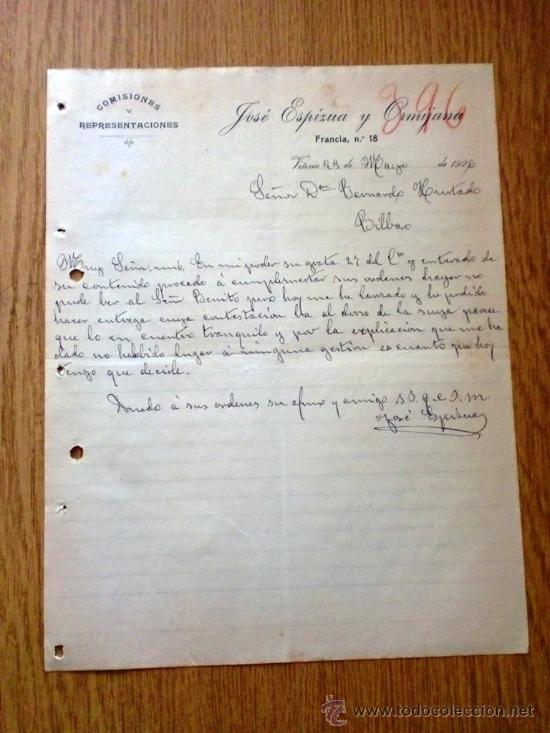 COMISIONES
Y
REPRESENTACIONES
José Espízua y Ormijana
396
Francia, n.º 18
Vitoria 29 de Mayo de 1926
Señor Don Bernardo Hurtado
Bilbao
Muy Señor mio, En mi poder su grata 27 del Cte y enterado de
su contenido procedo á cumplimentar sus ordenes hayer no
pude ber al Señr Benito pero hoy me ha y he podido
hacer entrega cuya contestacion ha al dorso de la suya parece
que lo en cuentro tranquilo y por la explicacion que me ha
dado no habbido lugar á ninguna gestion es cuanto por hoy
tengo que decirle.
á sus ordenes su afmo y amigo S.S. q.e.s.m
José Espizua
www.todocoleccion.net